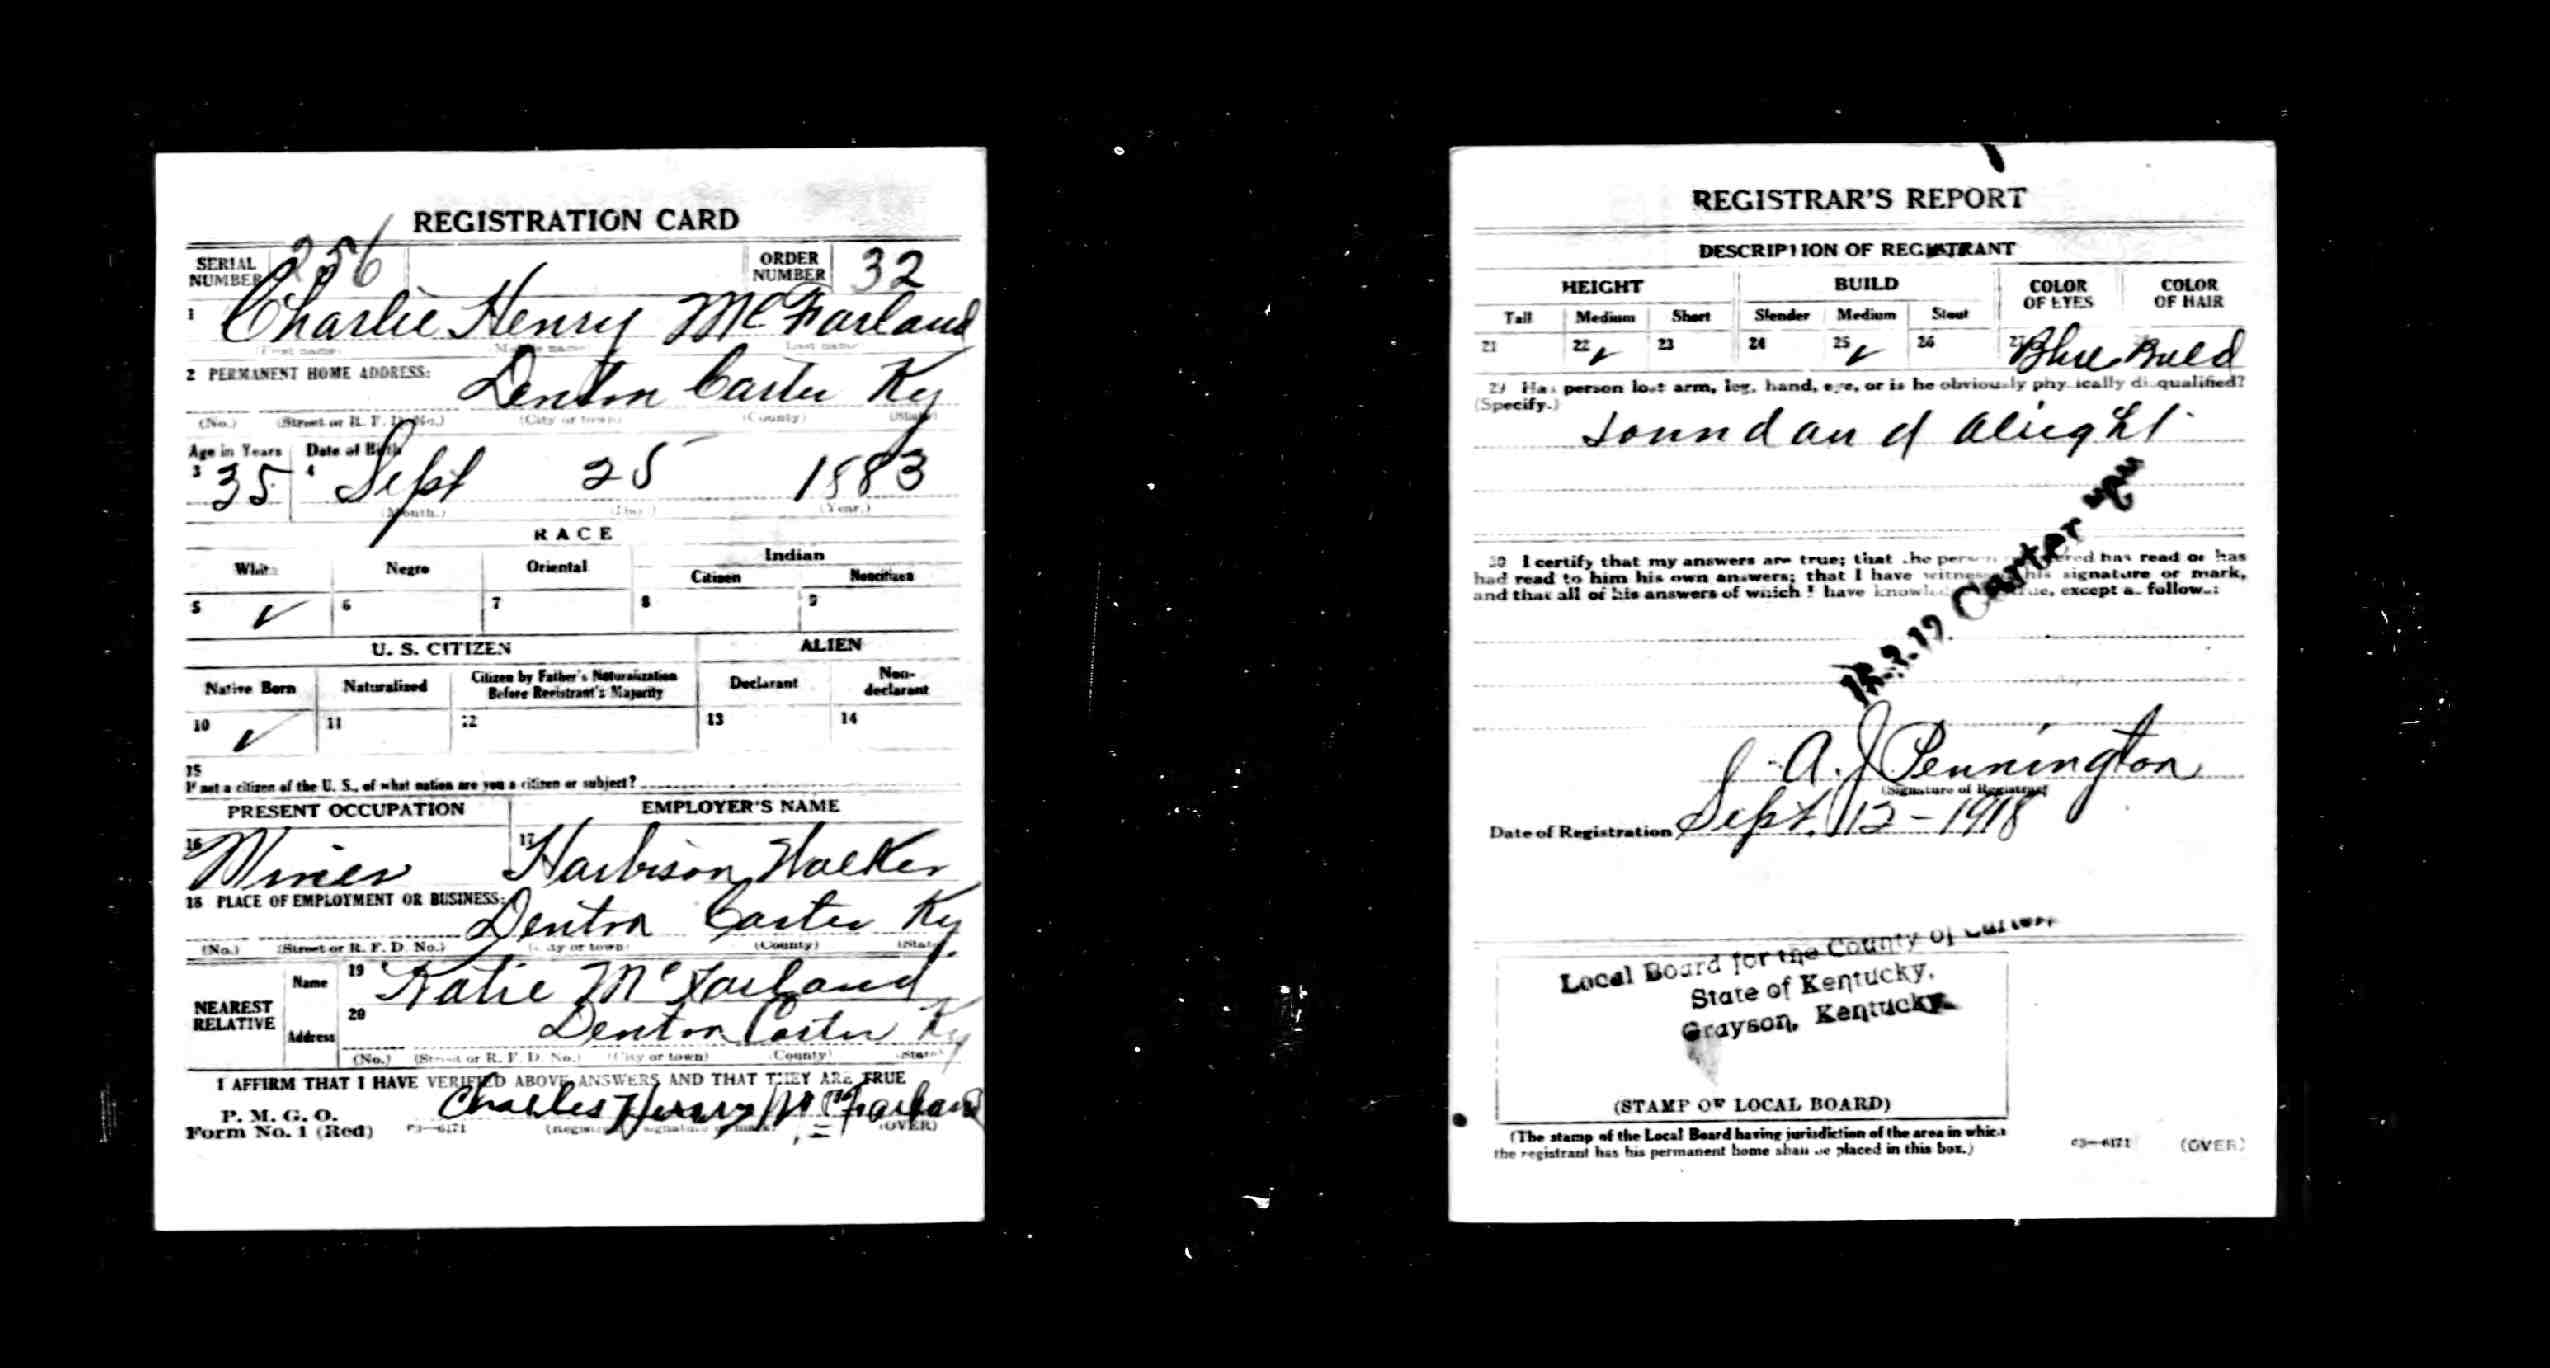 REGISTRATION CARD
SERIAL NUMBER 256 ORDER NUMBER 32
1 Charlie Henry McFarland
(First name) (Middle name) (Last name)
2 PERMANENT HOME ADDRESS:
Denton Carter Ky
(No.) (Street or R. F. D. No.) (City or town) (County) (State)
Age in Years Date of Birth
3 35 4 Sept 25 1883
(Month.) (Day.) (Year.)
RACE
White Negro Oriental Indian
Citizen Noncitizen
5 ✓ 6 7 8 9
U. S. CITIZEN ALIEN
Native Born Naturalized Citizen by Father's Naturalization Before Registrant's Majority Declarant Non-declarant
10 ✓ 11 12 13 14
15
If not a citizen of the U. S., of what nation are you a citizen or subject?
PRESENT OCCUPATION EMPLOYER'S NAME
16 Miner 17 Harbison Walker
18 PLACE OF EMPLOYMENT OR BUSINESS:
Denton Carter Ky
(No.) (Street or R. F. D. No.) (City or town) (County) (State)
NEAREST RELATIVE
Name 19 Katie McFarland
Address 20 Denton Carter Ky
(No.) (Street or R. F. D. No.) (City or town) (County) (State)
I AFFIRM THAT I HAVE VERIFIED ABOVE ANSWERS AND THAT THEY ARE TRUE
P. M. G. O.
Form No. 1 (Red) 03—6171 Charles Henry McFarland
(Registrant's signature or mark) (OVER)
REGISTRAR'S REPORT
DESCRIPTION OF REGISTRANT
HEIGHT BUILD COLOR OF EYES COLOR OF HAIR
Tall Medium Short Slender Medium Stout
21 22 ✓ 23 24 25 ✓ 26 27 Blue Bald
29 Has person lost arm, leg, hand, eye, or is he obviously physically disqualified?
(Specify.)
Sound and alright
30 I certify that my answers are true; that the person registered has read or has
had read to him his own answers; that I have witnessed his signature or mark,
and that all of his answers of which I have knowledge are true, except as follows:
Carter
A. J. Pennington
(Signature of Registrar)
Date of Registration Sept. 12-1918
Local Board for the County of Carter,
State of Kentucky,
Grayson, Kentucky.
(STAMP OF LOCAL BOARD)
(The stamp of the Local Board having jurisdiction of the area in which
the registrant has his permanent home shall be placed in this box.)
03—6171 (OVER)